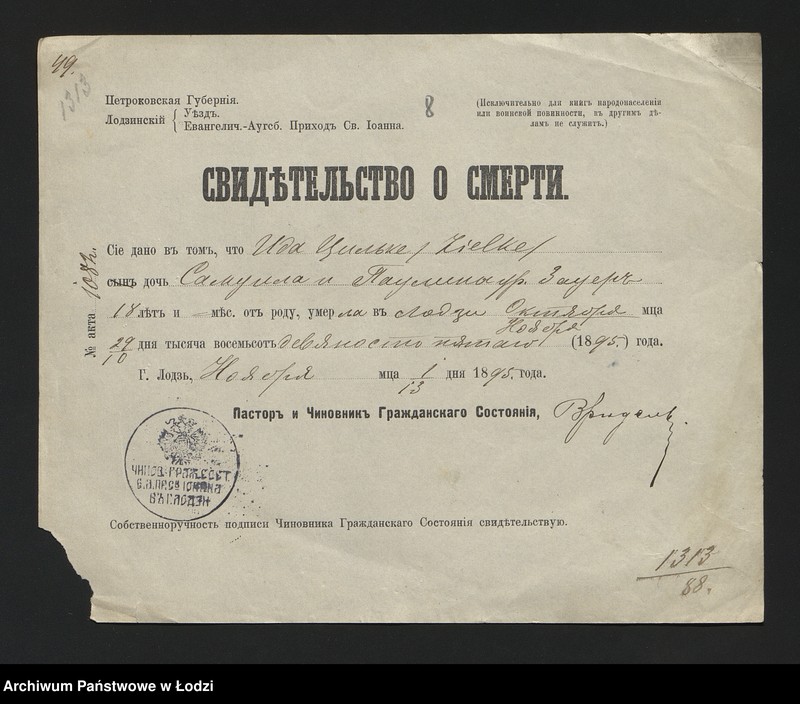 49.
1313
Петроковская Губернія.
8
(Исключительно для книгъ народонаселенія
или воинской повинности, въ другимъ дѣ-
ламъ не служитъ.)
Лодзинскій { Уѣздъ.
Евангелич.-Аугсб. Приходъ Св. Іоанна.
СВИДѢТЕЛЬСТВО О СМЕРТИ.
№ акта 1082.
Сіе дано въ томъ, что Ида Цильке / Zielke /
сынъ дочь Самуила и Паулина ур. Зауеръ
18 лѣтъ и — мѣс. отъ роду, умерла въ Лодзи Октября мца
Ноября
29/10 дня тысяча восемьсотъ девяносто пятаго (1895.) года.
Г. Лодзь, Ноября мца 1/13 дня 1895. года.
Пасторъ и Чиновникъ Гражданскаго Состоянія,
ЧИНОВ. ГРАЖ. СОСТ.
ВЪ Г. ЛОДЗИ
Собственноручность подписи Чиновника Гражданскаго Состоянія свидѣтельствую.
1313
88.
Archiwum Państwowe w Łodzi